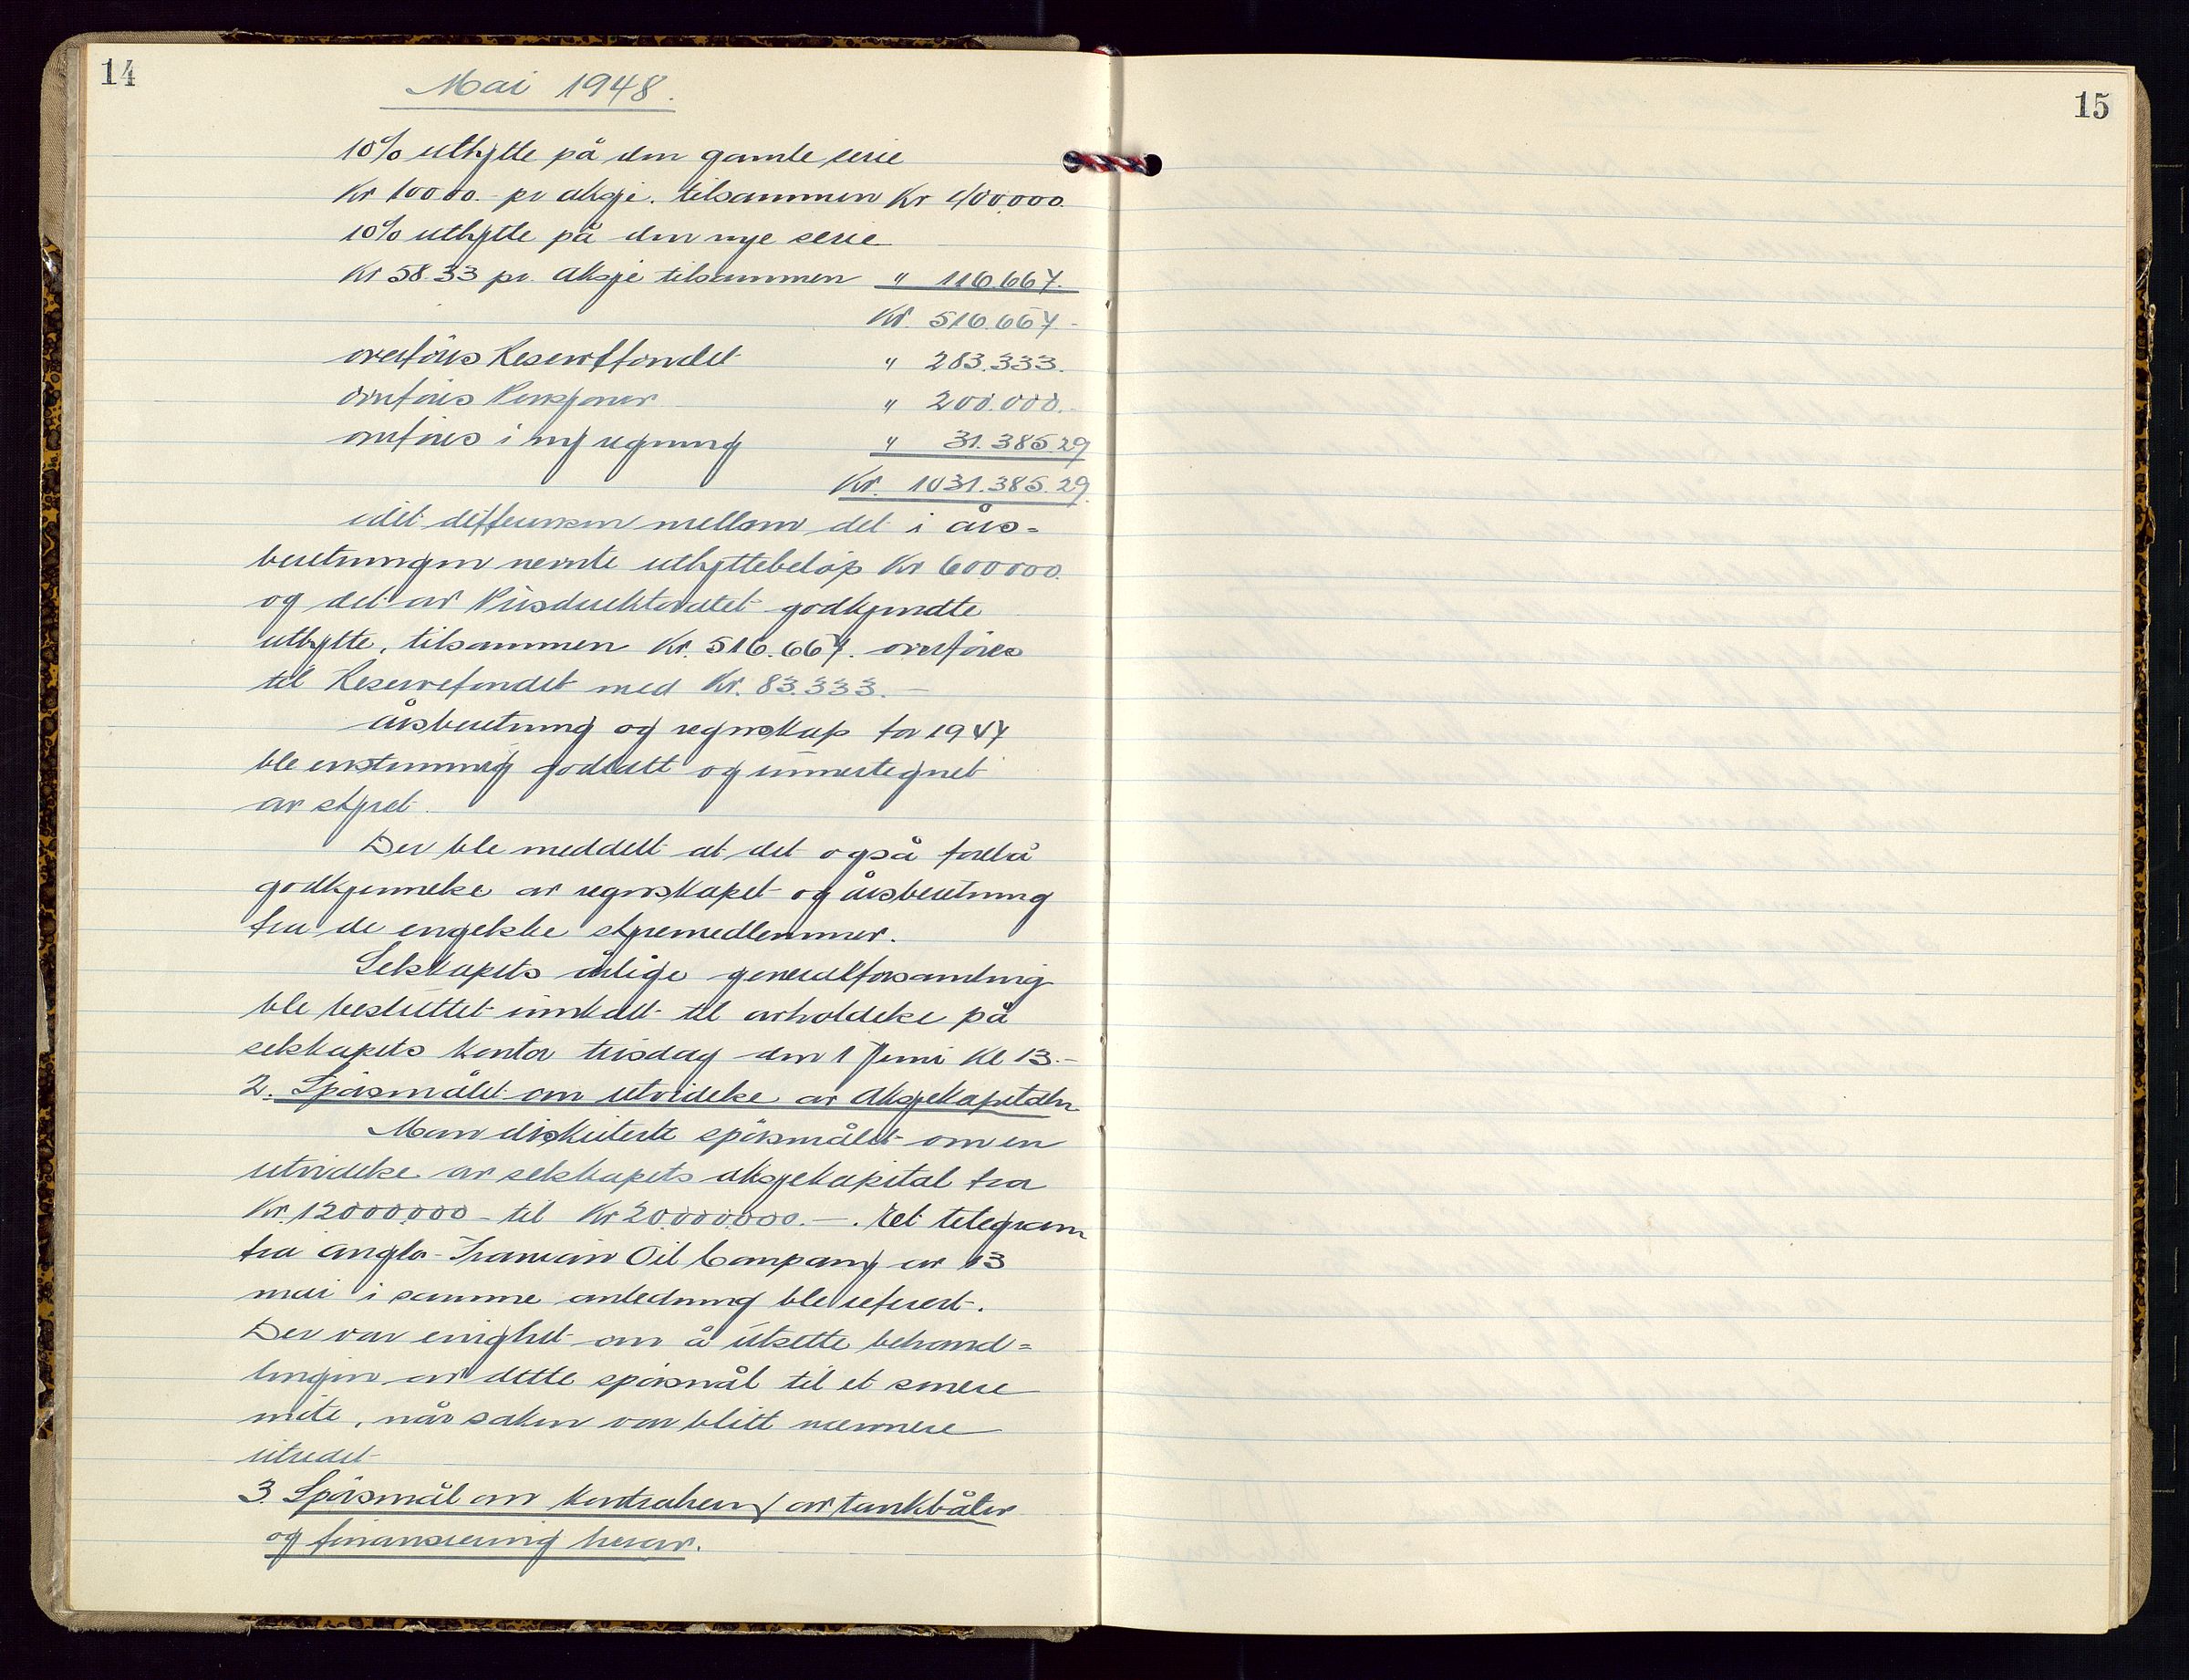 14
Mai 1948.
10% utbytte på den gamle serie
Kr 100.00.- pr aksje. tilsammen Kr 400.000.
10% utbytte på den nye serie
Kr 58.33 pr. aksje tilsammen " 116.667.
Kr. 516.667.-
overföres Reservefondet " 283.333.
overföres Pensjoner " 200.000.-
overföres i ny regning " 31.385.29
Kr. 1031.385.29.
idet differensen mellom det i års=
beretningen nevnte utbyttebelöp Kr 600000.
og det av Prisdirektoratet godkjendte
utbytte, tilsammen Kr. 516.667. overföres
til Reservefondet med Kr. 83.333.-
Årsberetning og regnskap for 1947
ble enstemmig godtatt og undertegnet
av styret.
Der ble meddelt at det også forelå
godkjennelse av regnskapet og årsberetning
fra de engelske styremedlemmer.
Selskapets årlige generalforsamling
ble besluttet innkalt til avholdelse på
selskapets kontor tirsdag den 1 Juni Kl 13.-
2. Spörsmålet om utvidelse av aksjekapitalen
Man diskuterte spörsmålet om en
utvidelse av selskapets aksjekapital fra
Kr. 12000.000 - til Kr 20.000.000.-. Et telegram
fra Anglo-Iranian Oil Company av 13
mai i samme anledning ble referert.
Der var enighet om å utsette behand=
lingen av dette spörsmål til et senere
möte, når saken var blitt nærmere
utredet
3. Spörsmål om kontrahering av tankbåter
og finansiering herav.
15